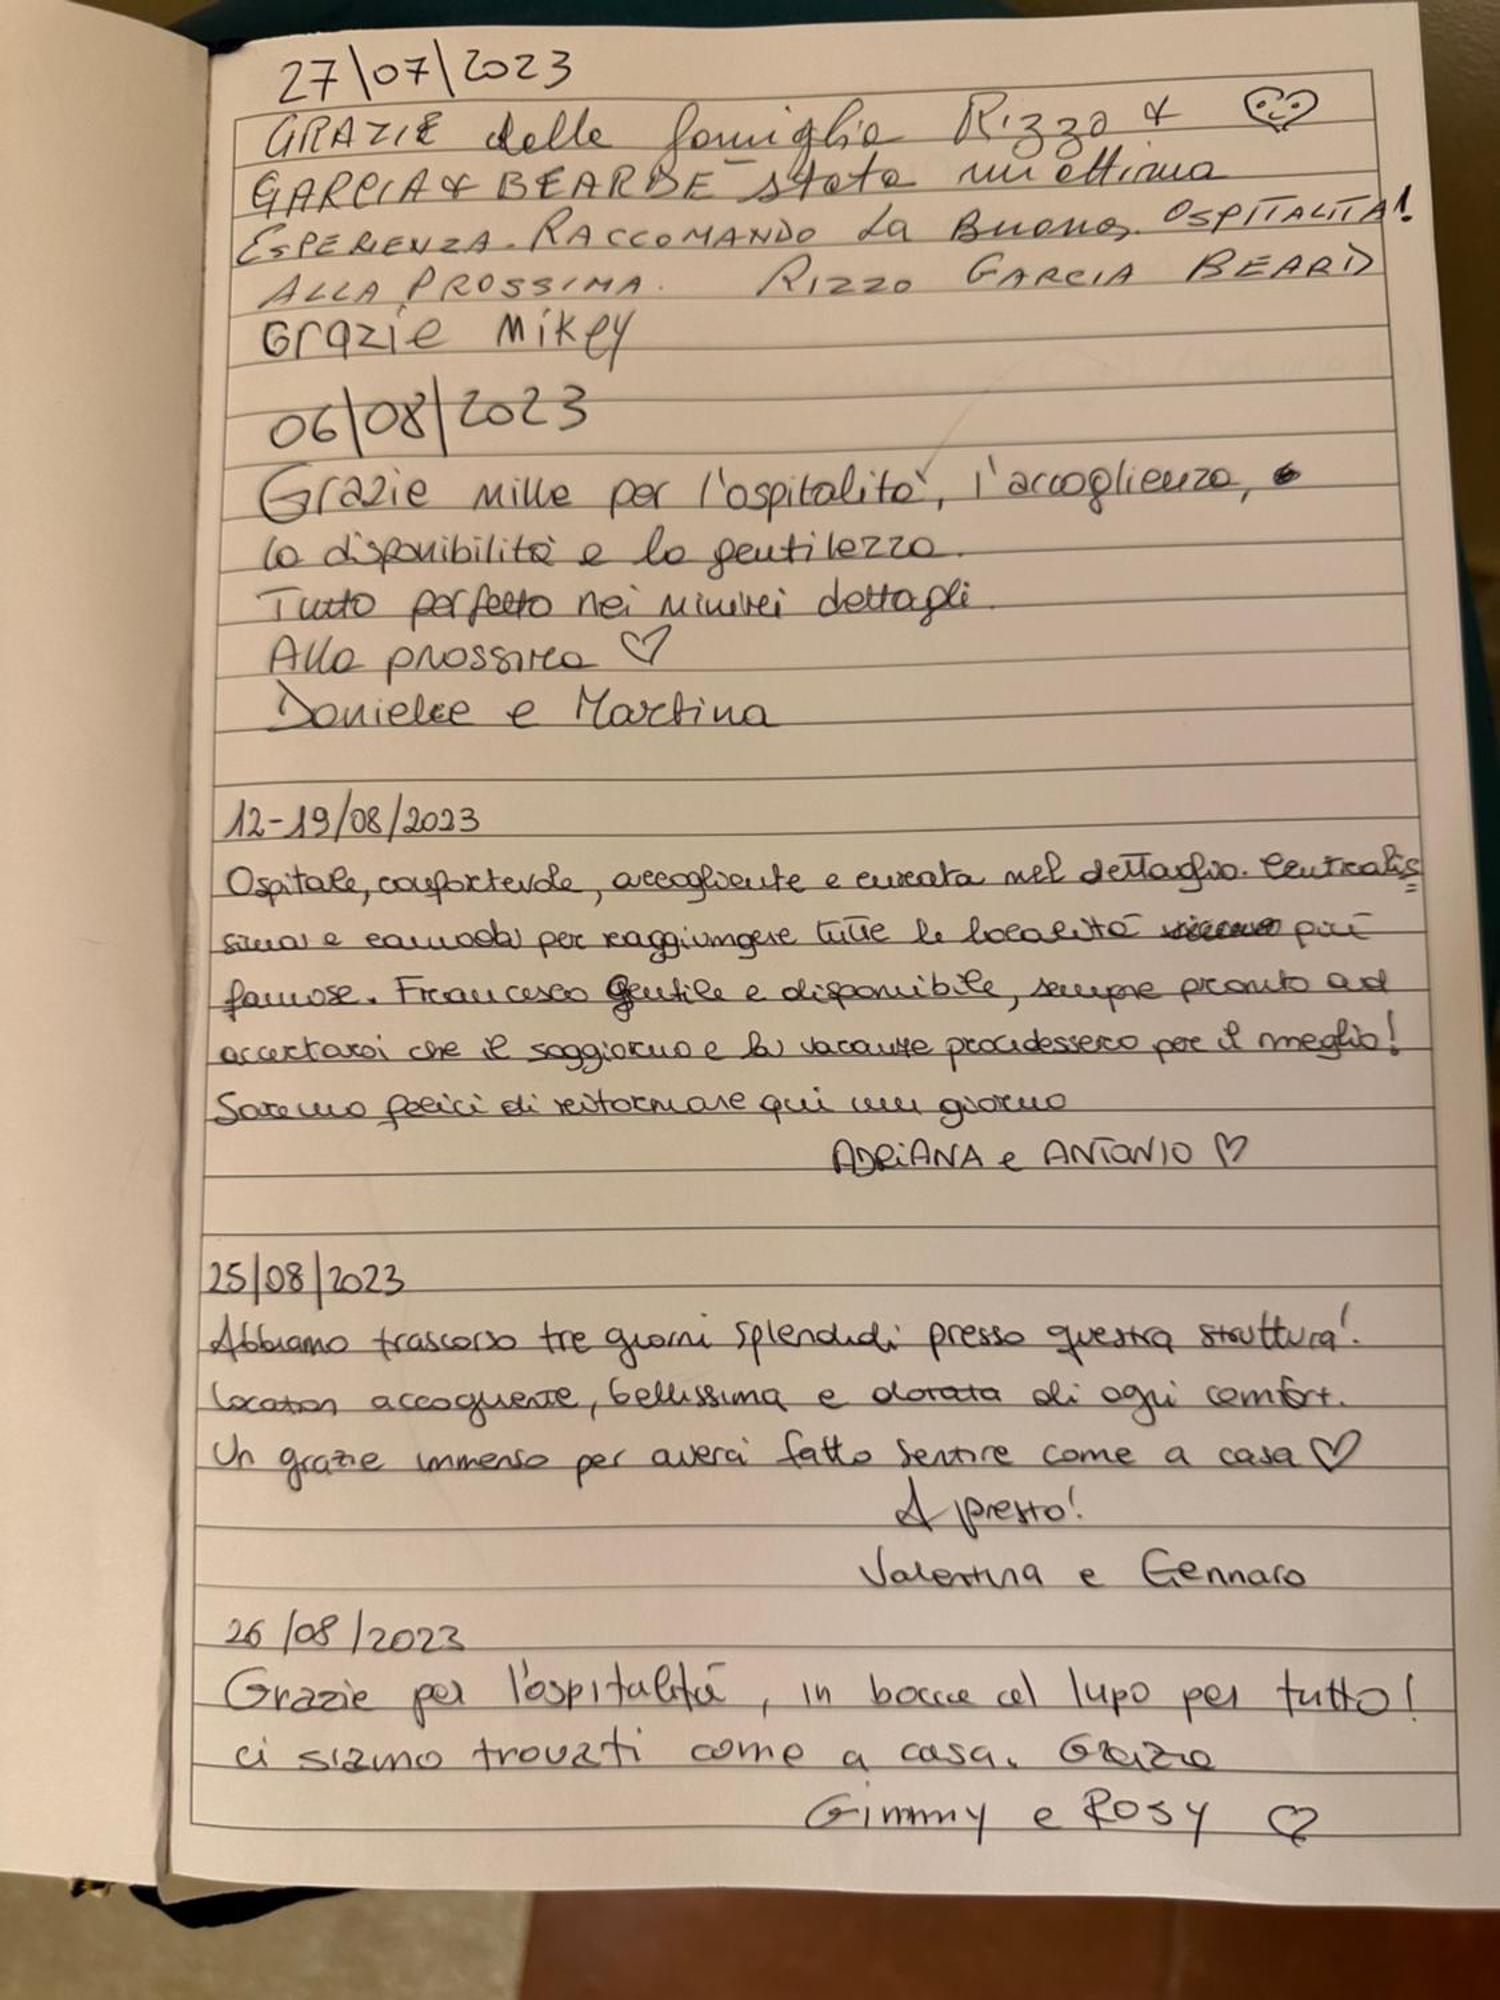 27/07/2023
GRAZIE della famiglia Rizzo &
GARCIA & BEARDE stata un ottima
ESPERIENZA. RACCOMANDO La Buona. OSPITALITA!
ALLA PROSSIMA. RIZZO GARCIA BEARD
Grazie Mikey
06/08/2023
Grazie mille per l'ospitalità, l'accoglienza,
la disponibilità e la gentilezza.
Tutto perfetto nei minimi dettagli.
Alla prossima ♡
Daniele e Martina
12-19/08/2023
Ospitale, confortevole, accogliente e curata nel dettaglio. Centralis
sima e comoda per raggiungere tutte le località più
famose. Francesco gentile e disponibile, sempre pronto ad
accertarsi che il soggiorno e la vacanza procedessero per il meglio!
Saremo felici di ritornare qui un giorno
ADRIANA e ANTONIO ♡
25/08/2023
Abbiamo trascorso tre giorni splendidi presso questa struttura!.
Location accogliente, bellissima e dotata di ogni comfort.
Un grazie immenso per averci fatto sentire come a casa ♡
A presto!
Valentina e Gennaro
26/08/2023
Grazie per l'ospitalità, in bocca al lupo per tutto!
ci siamo trovati come a casa. Grazie
Gimmy e Rosy ♡